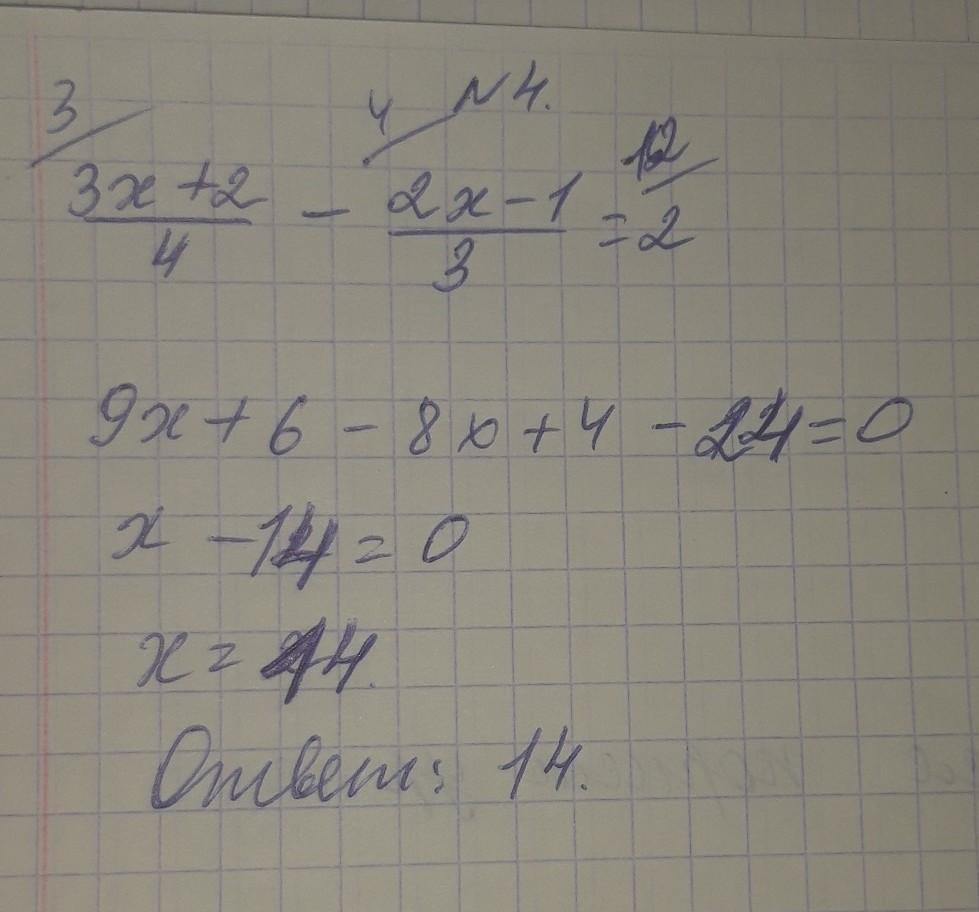 N4.
3 4 12
(3x+2)/4 - (2x-1)/3 = 2
9x+6-8x+4-24=0
x-14=0
x=14.
Ответ: 14.